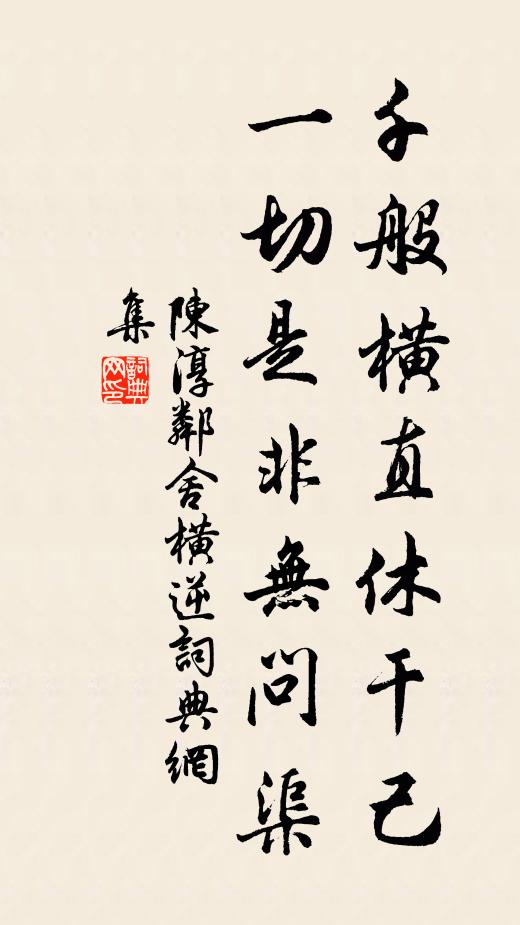 千般橫直休干己
一切是非無問渠
陳淳鄰舍橫逆詞典網
集
詞典
网印